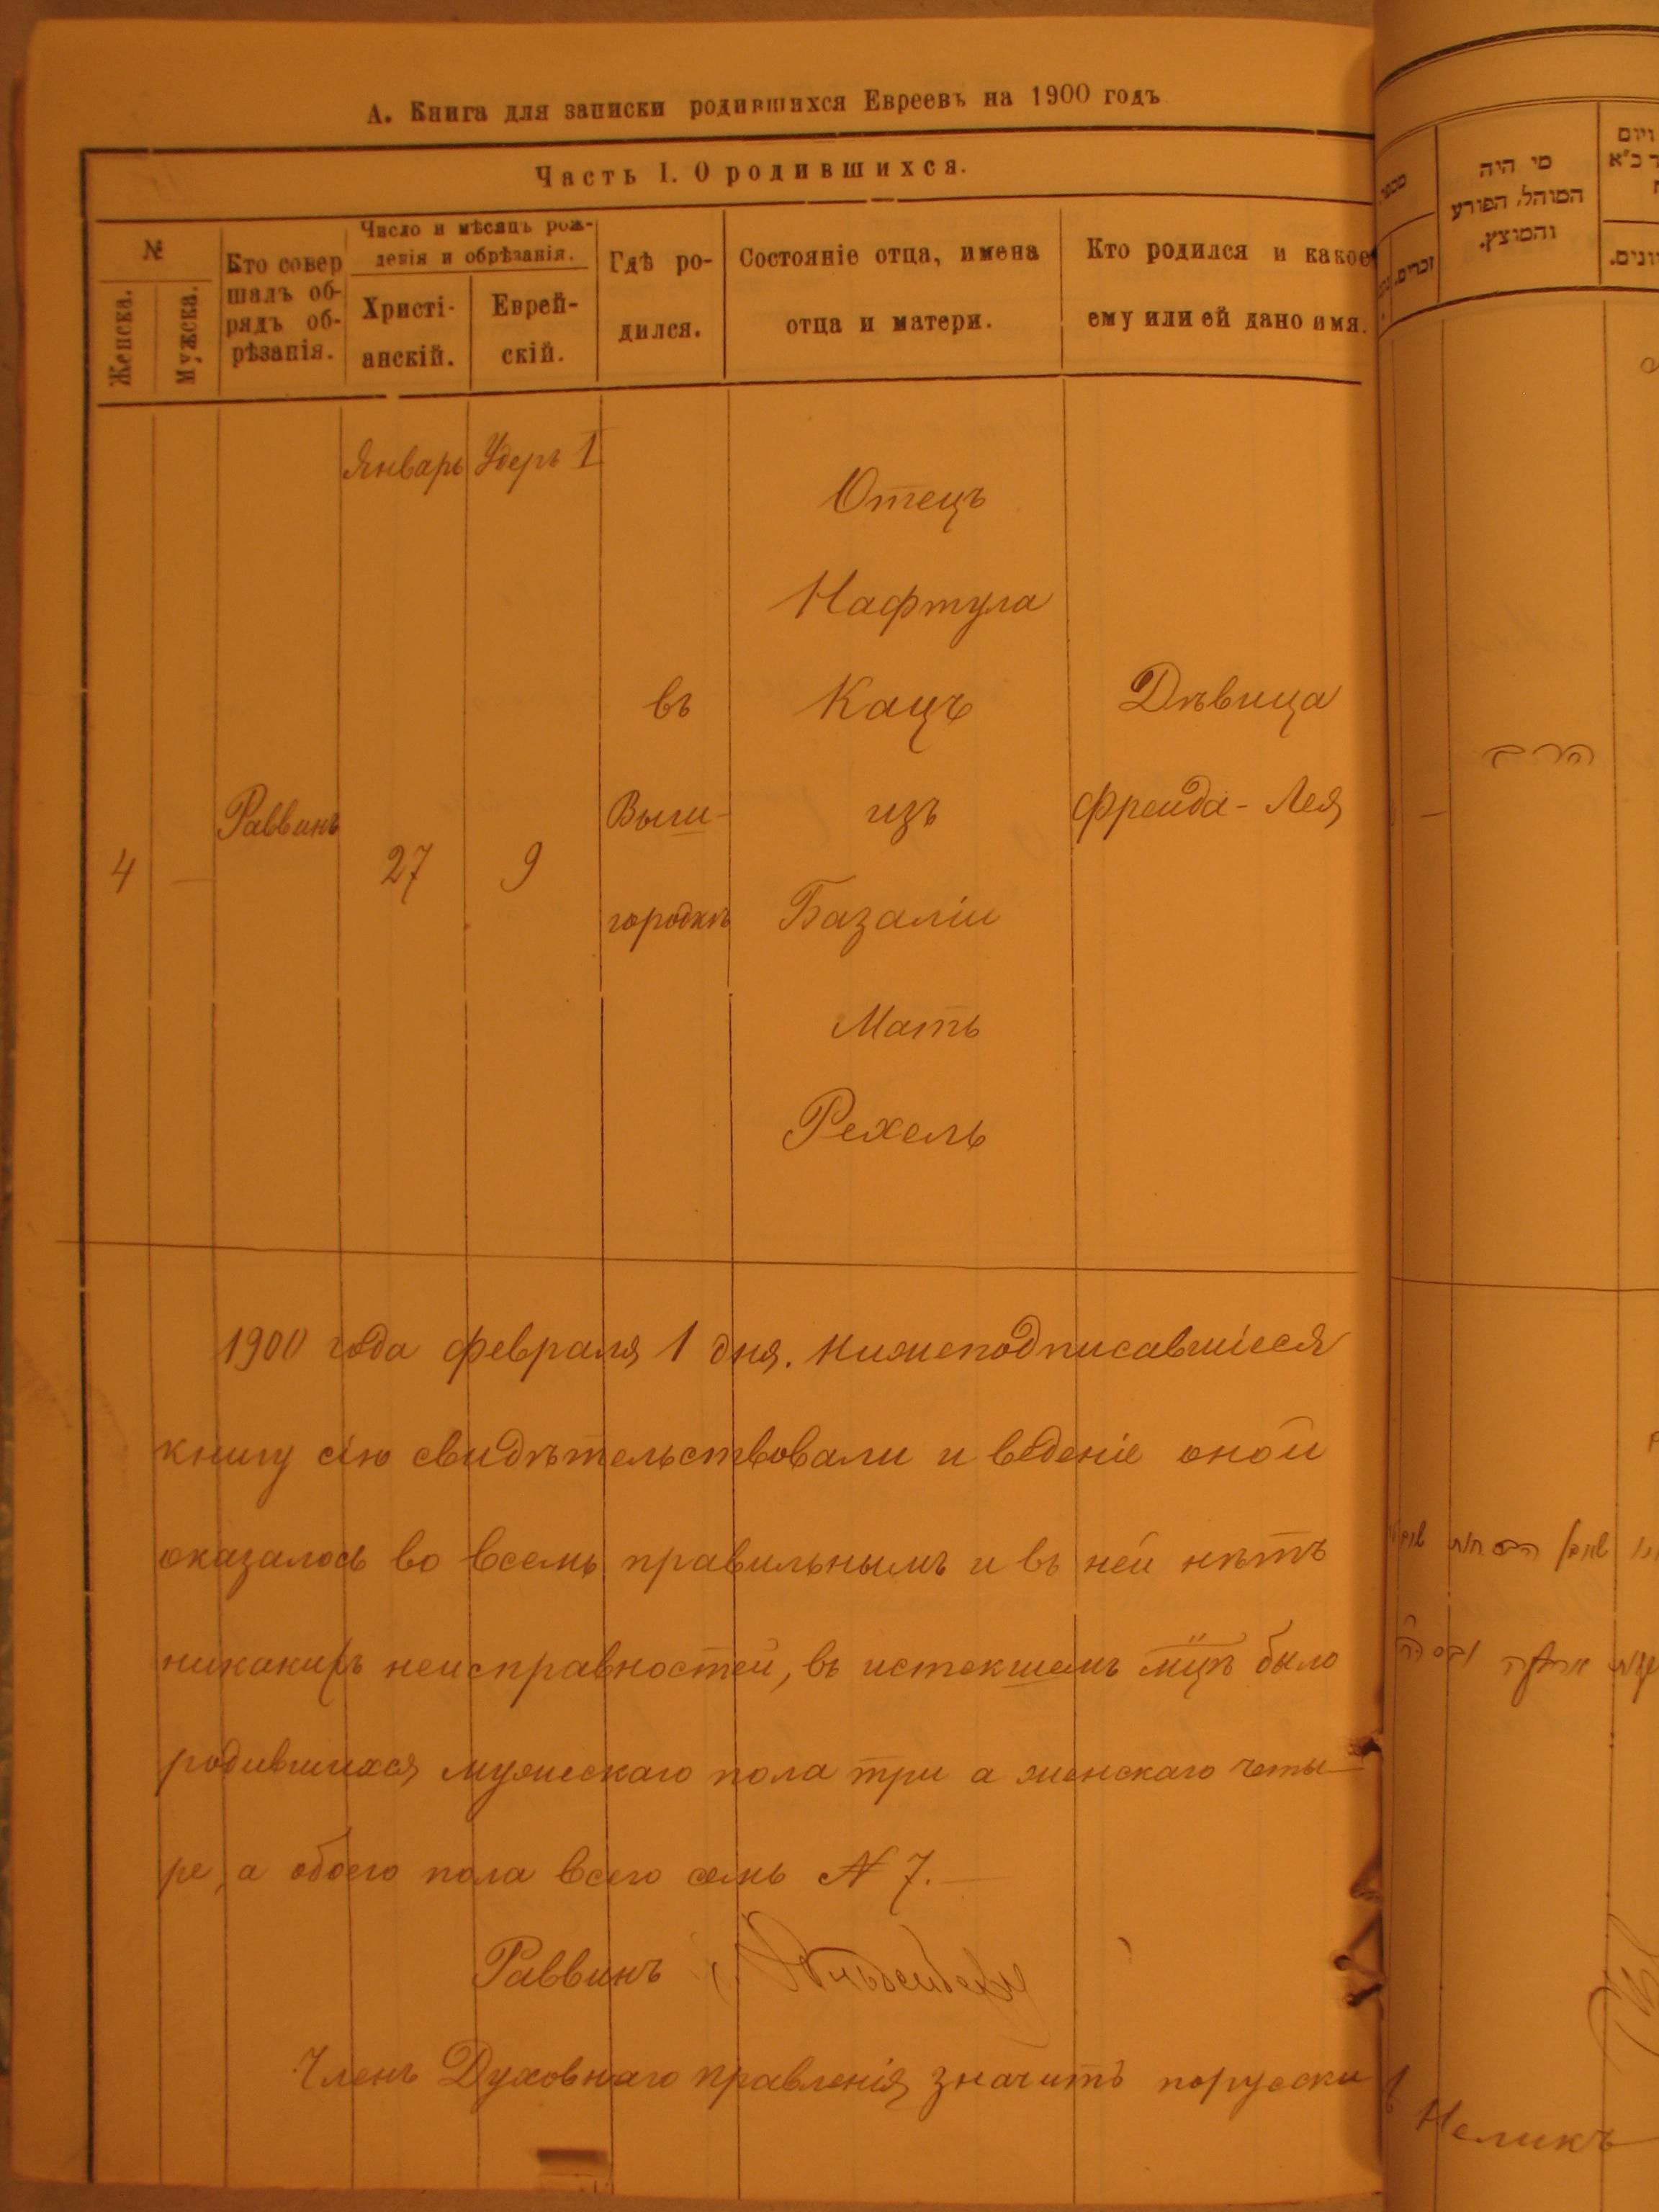 А. Книга для записки родившихся Евреевъ на 1900 годъ
Часть I. О родившихся.
№
Женска.
Мужска.
Кто совер
шалъ об-
рядъ об-
рѣзанія.
Число и мѣсяцъ рож-
денія и обрѣзанія.
Христі-
анскій.
Еврей-
скій.
Гдѣ ро-
дился.
Состояніе отца, имена
отца и матери.
Кто родился и какое
ему или ей дано имя.
4
—
Раввинъ
Январь
27
Адеръ I
9
въ
Выш-
городкѣ
Отецъ
Нафтула
Кацъ
изъ
Базаліи
Мать
Рехель
Дѣвица
Фрейда - Лея
1900 года февраля 1 дня. Нижеподписавшіеся
книгу сію свидѣтельствовали и веденіе оной
оказалось во всемъ правильнымъ и въ ней нѣтъ
никакихъ неисправностей, въ истекшемъ мцѣ было
родившихся мужескаго пола три а женскаго четы-
ре, а обоего пола всего семь № 7.
Раввинъ
Членъ Духовнаго правленія значитъ порусски
מי היה
המוהל, הפורע
והמוצץ.
זכרים.
הרב
—
Меликъ